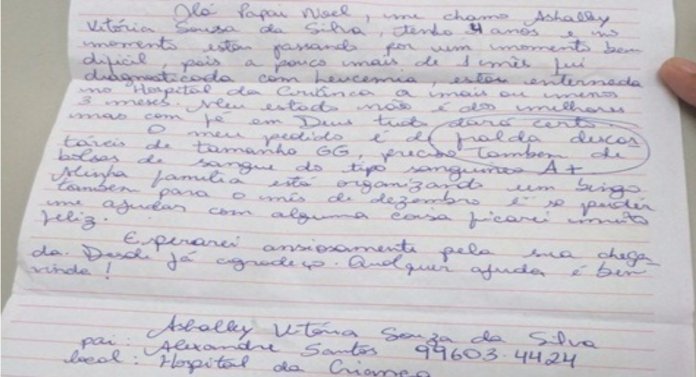 Olá Papai Noel, me chamo Ashalley
Vitória Sousa da Silva, tenho 4 anos e no
momento estou passando por um momento bem
difícil, pois a pouco mais de 1 mês fui
diagnosticada com Leucemia, estou internada
no Hospital da Criança a mais ou menos
3 meses. Meu estado não é dos melhores
mas com fé em Deus tudo dará certo.
O meu pedido é de fralda descar
táveis de tamanho GG, preciso também de
bolsas de sangue do tipo sanguíneo A+.
Minha família está organizando um bingo
também para o mês de dezembro e se puder
me ajudar com alguma coisa ficarei muito
feliz.
Esperarei ansiosamente pela sua chega-
da. Desde já agradeço. Qualquer ajuda é bem
vinda!
Ashalley Vitória Souza da Silva
pai: Alexandre Santos 99603-4424
local: Hospital da Criança